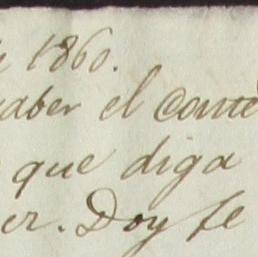 1860.
saber el conte
que diga
er. Doy fe